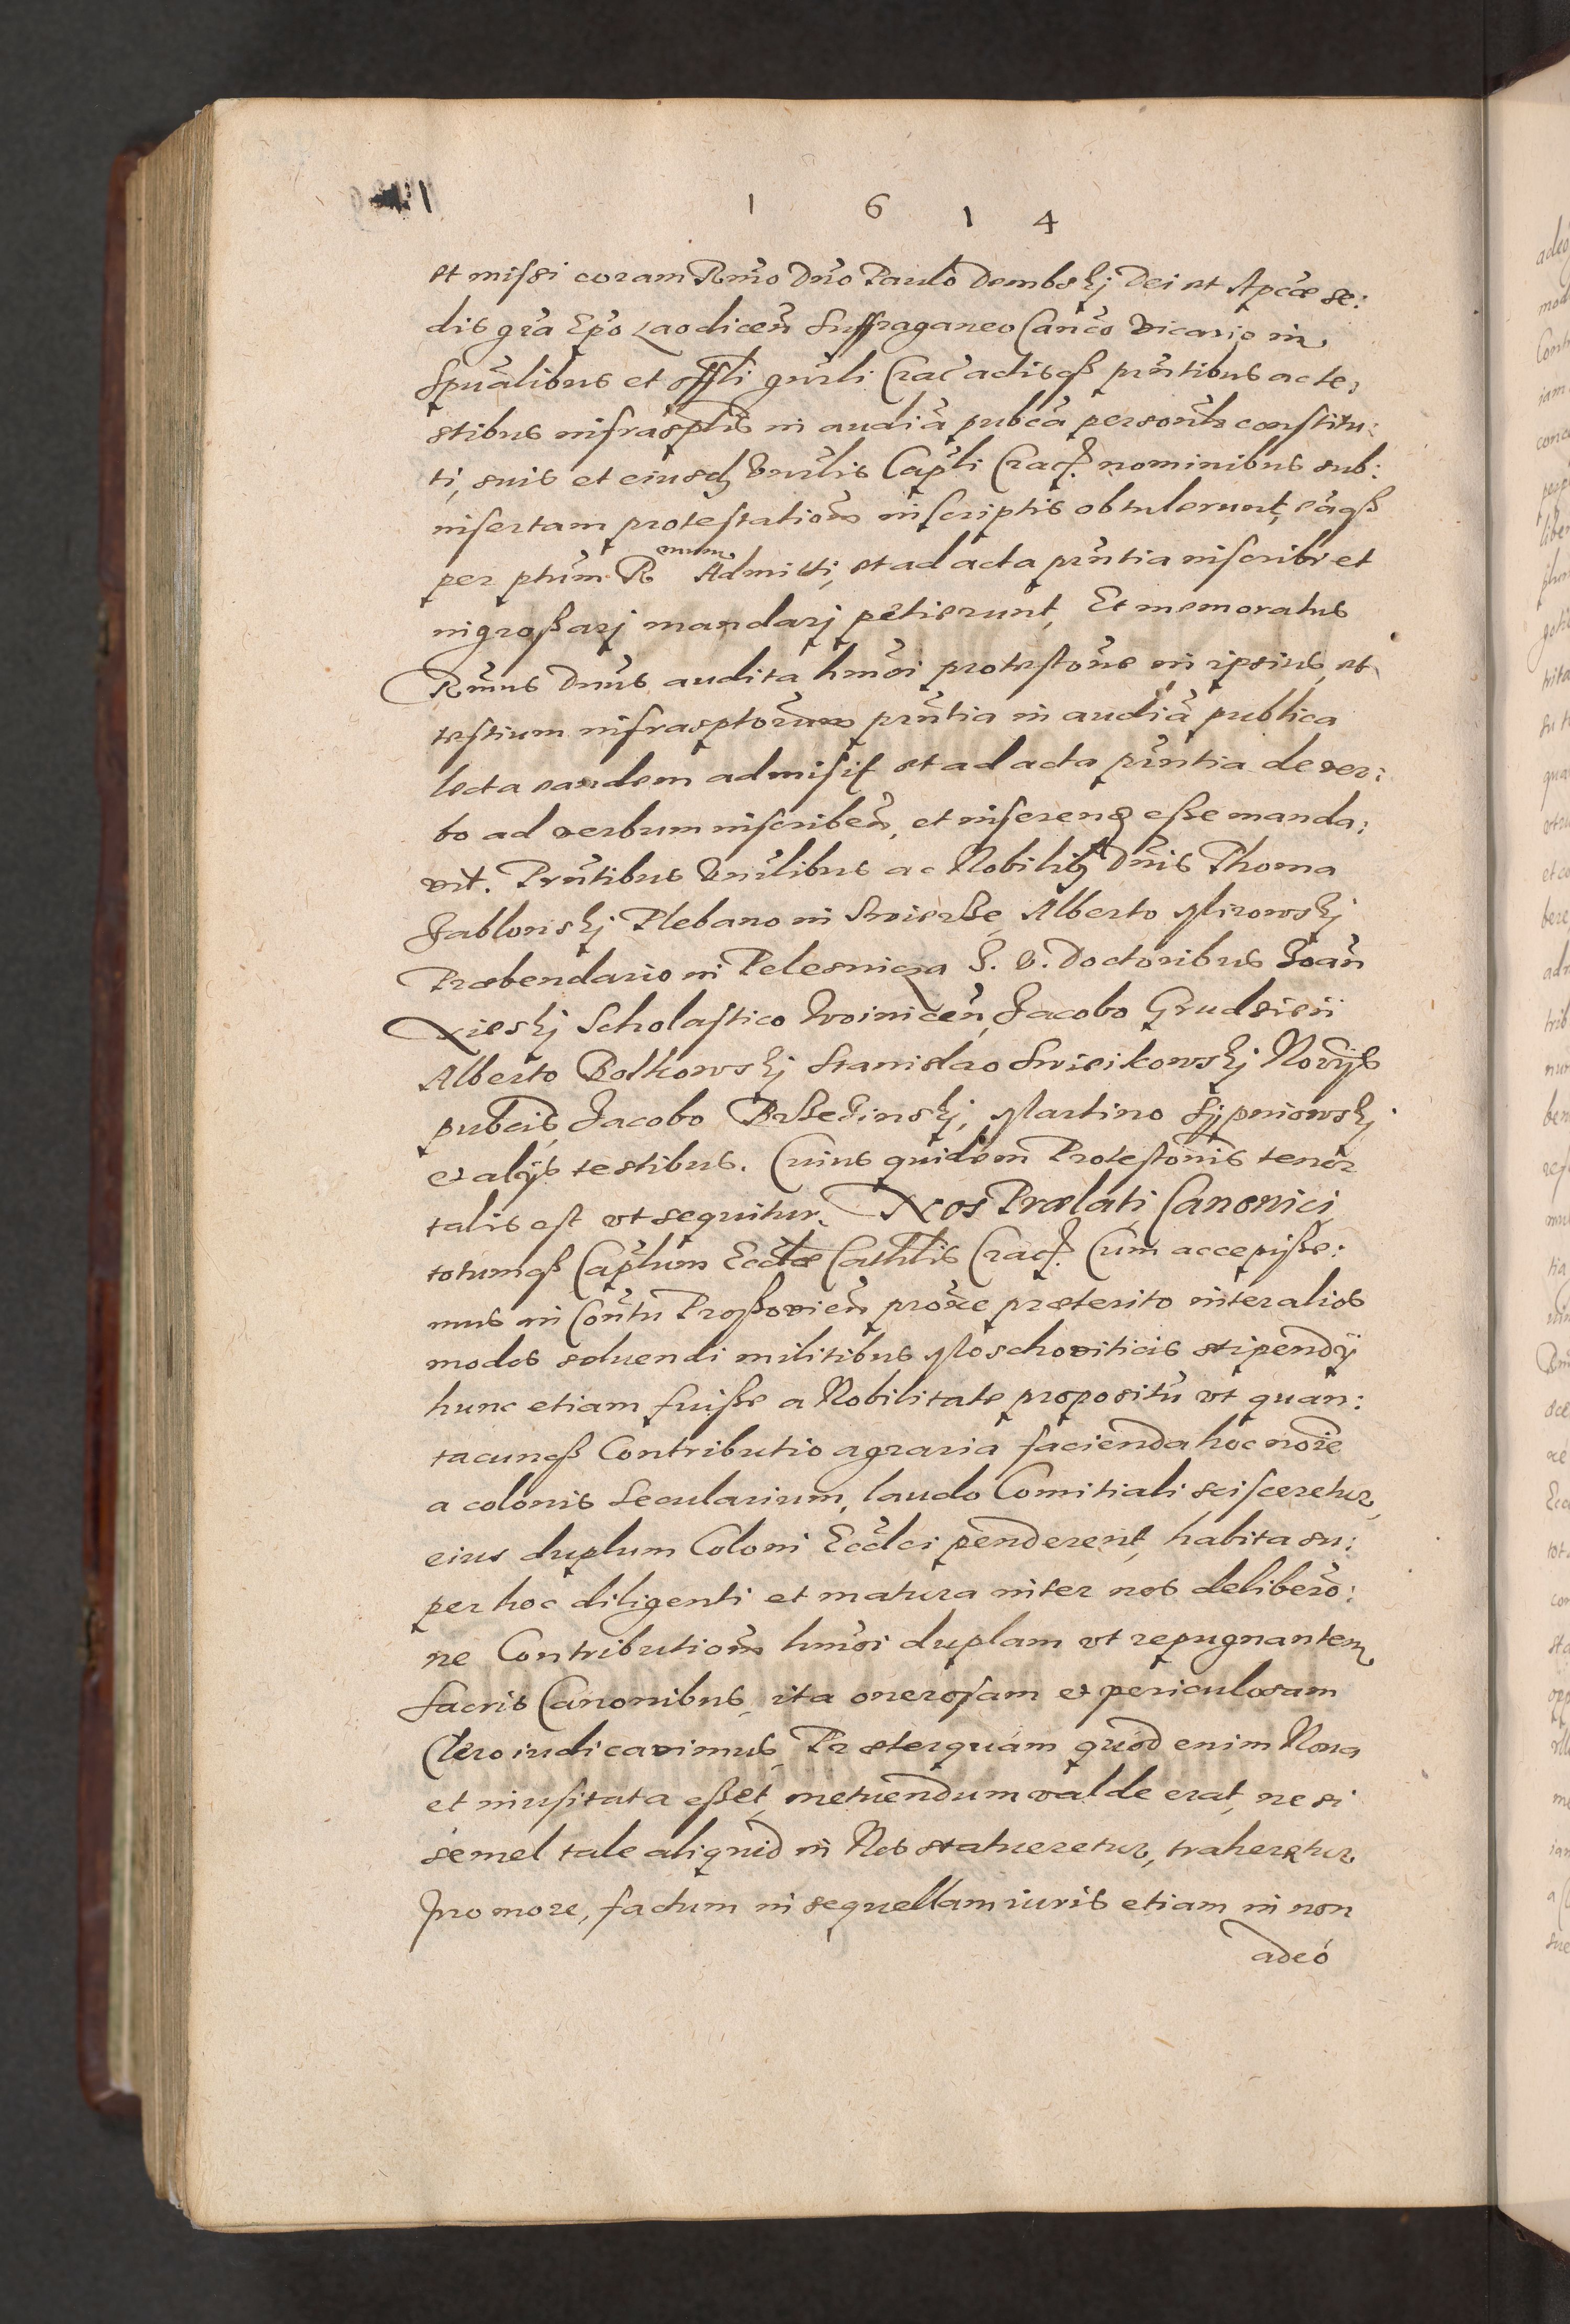 1 6 1 4
et missi coram Rmo Dno Paulo Dembskj Dei et Apcæ se:
dis gra Epo Laodicen Suffraganeo Canco Vicario in
Spualibus et offli gnrli Crac actisqß prntibus ac te,
stibus infrasptis in audia pubca personlr constitu:
ti, suis et eiusdem Vnrlis Capli Crac. nominibus sub:
insertam protestationem in scriptis obtulerunt, eaqß
per ptum R mum Admitti, et ad acta prntia inscribi et
ingroßarj mandarj petierunt, Et memoratus
Rmus Dnus audita hmoi protestone in ipsius, et
testium infrasptorum prntia in audia publica
lecta eandem admisit et ad acta prntia de ver:
bo ad verbum inscriben, et inserend eße manda:
vit. Prntibus Vnrlibus ac Nobilib9 Dnis Thoma
Jablonskj Plebano in Swierße, Alberto Mirowskj
Præbendario in Pelesnicza I. V. Doctoribus Joan
Xieskj Scholastico Woinicen, Jacobo Grudzien
Alberto Bolkowskj Stanislao Swieikowskj Notijs
pubcis, Jacobo Brßezinskj, Martino Sijpniowskj
et alijs testibus. Cuius quidem Protestonis tenor
talis est vt sequitur. Nos Prælati, Canonici
totumqß Caplum Ecclæ Cathlis Crac. Cum accepiße:
mus in Contu Proßovien proxe præterito inter alios
modos soluendi militibus Moschoviticis stipendij
hunc etiam fuiße a Nobilitate propositu vt quan:
tacunqß Contributio agraria facienda hoc noie
a colonis Secularium, laudo Comitiali scisceretur,
eius duplum Coloni Eccleci penderent, habita su:
per hoc diligenti et matura inter nos delibero:
ne Contributionem hmoi duplam vt repugnantem
Sacris Canonibus, ita onerosam et periculosam
Clero iudicavimus, Præterquam quod enim Nova
et inusitata eßet, metuendum valde erat, ne si
semel tale aliquid in Nos statueretur, traheretur
In more, factum in sequellam iuris etiam in non
adeó